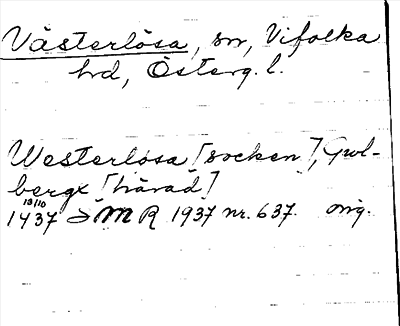 Västerlösa, sn, Vifolka
hd, Österg. l.
Westerlösa [socken], Gwl-
bergx [härad]
13/10
1437 SMR 1937 nr. 637. orig.